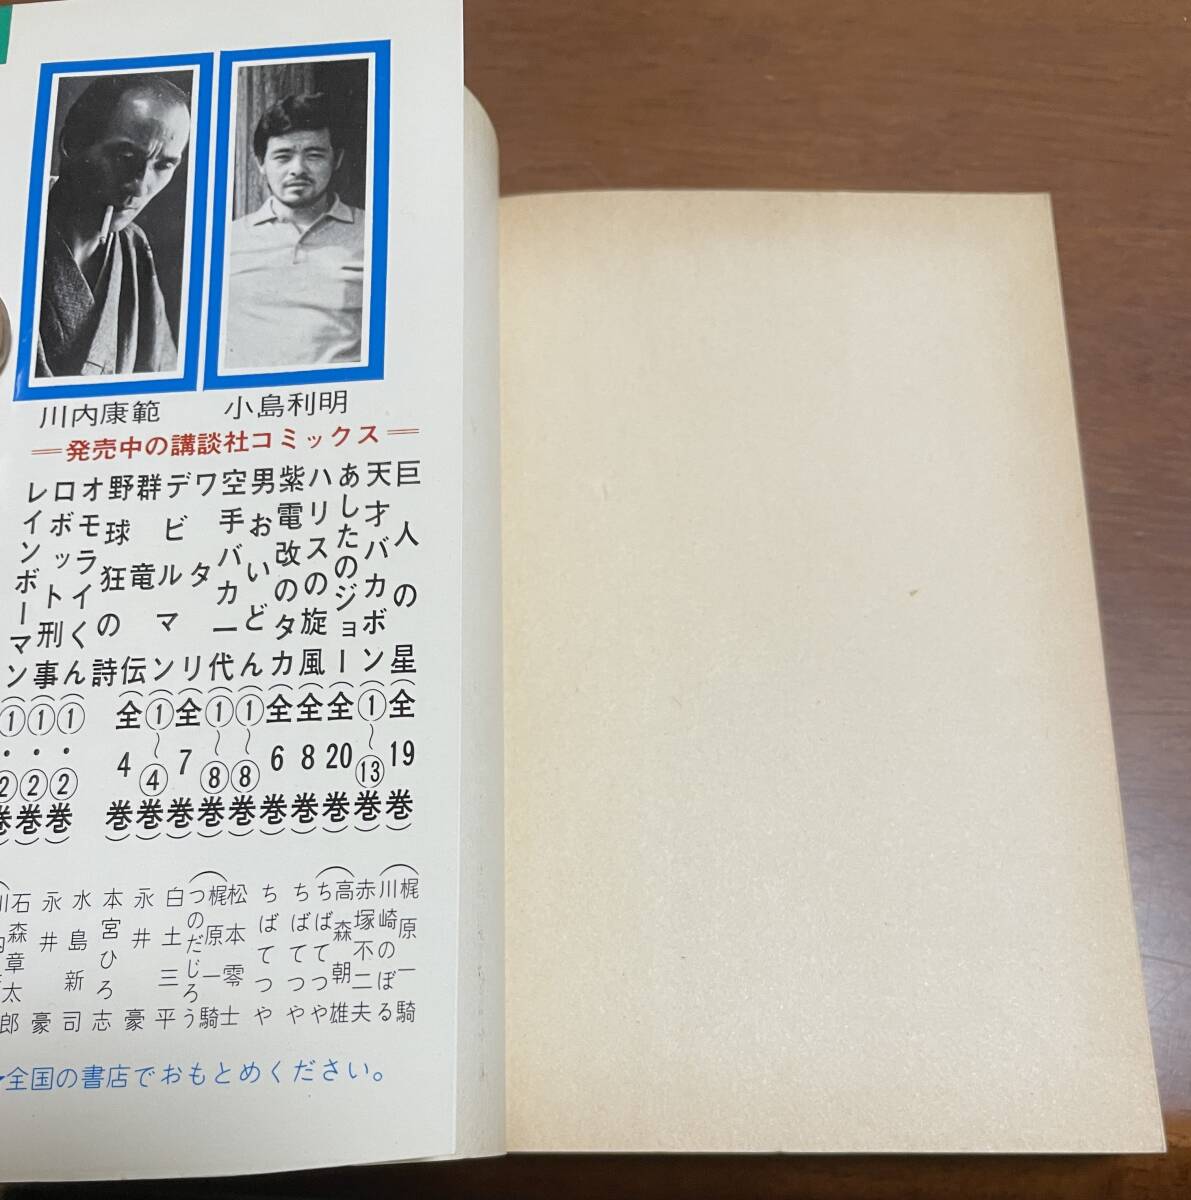 川内康範
小島利明
発売中の講談社コミックス
巨人の星(全19巻)
天才バカボン(①~⑬巻)
あしたのジョー(全20巻)
ハリスの旋風(全8巻)
紫電改のタカ(全6巻)
男おいどん(①~⑧巻)
空手バカ一代(①~⑧巻)
ワタリ(全7巻)
デビルマン(①~④巻)
群竜伝(全4巻)
野球狂の詩
オモライくん(①・②巻)
ロボット刑事(①・②巻)
レインボーマン(①・②巻)
梶原一騎
川崎のぼる
赤塚不二夫
高森朝雄
ちばてつや
ちばてつや
ちばてつや
松本零士
梶原一騎
つのだじろう
白土三平
永井豪
本宮ひろ志
水島新司
永井豪
石森章太郎
全国の書店でおもとめください。